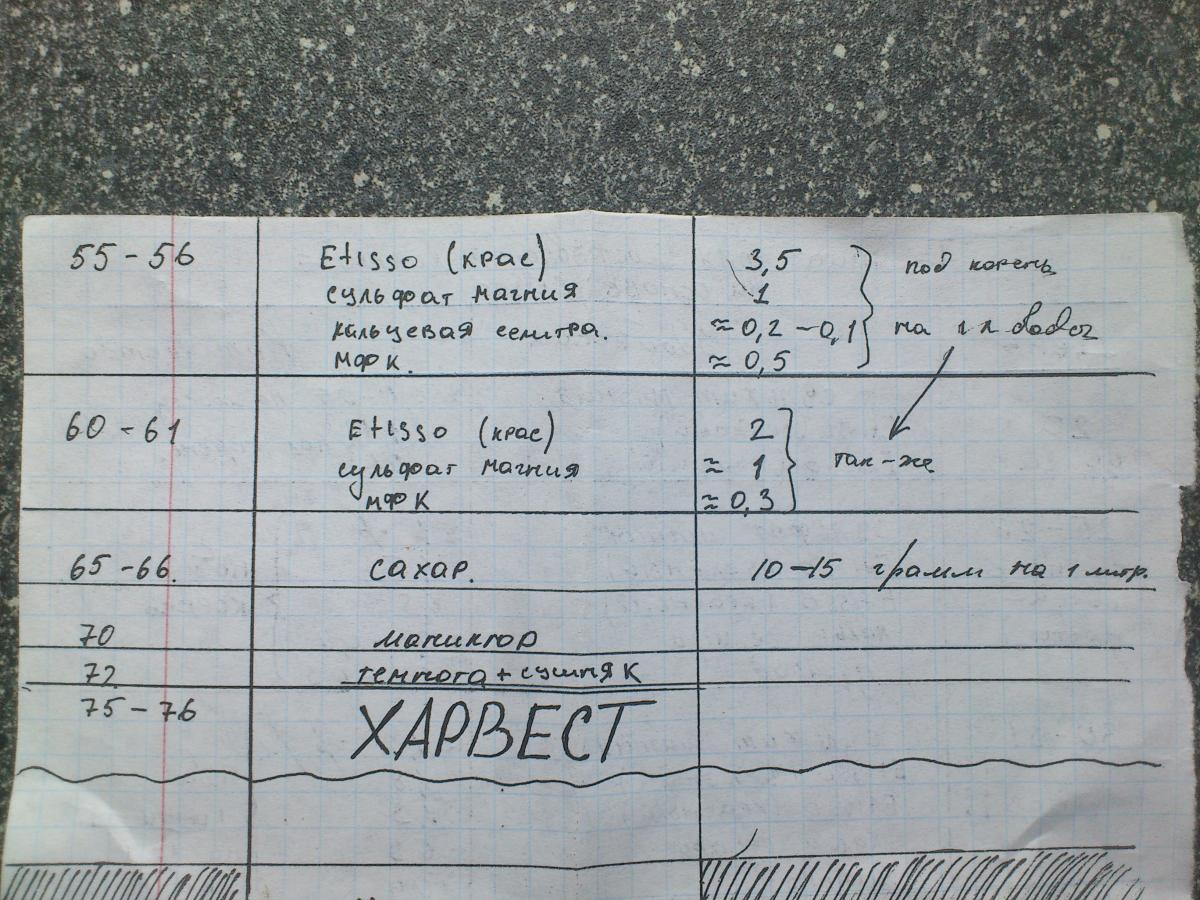 55 - 56 Etisso (крас) 3,5 под корень
сульфат магния 1
кальцевая селитра. ≈ 0,2 - 0,1 на 1 л
МФК. ≈ 0,5
60 - 61 Etisso (крас) 2
сульфат магния ≈ 1 так-же
МФК ≈ 0,3
65 - 66. сахар. 10-15 грамм на 1 литр.
70 маникюр
72 темнота + сушняк
75 - 76 ХАРВЕСТ